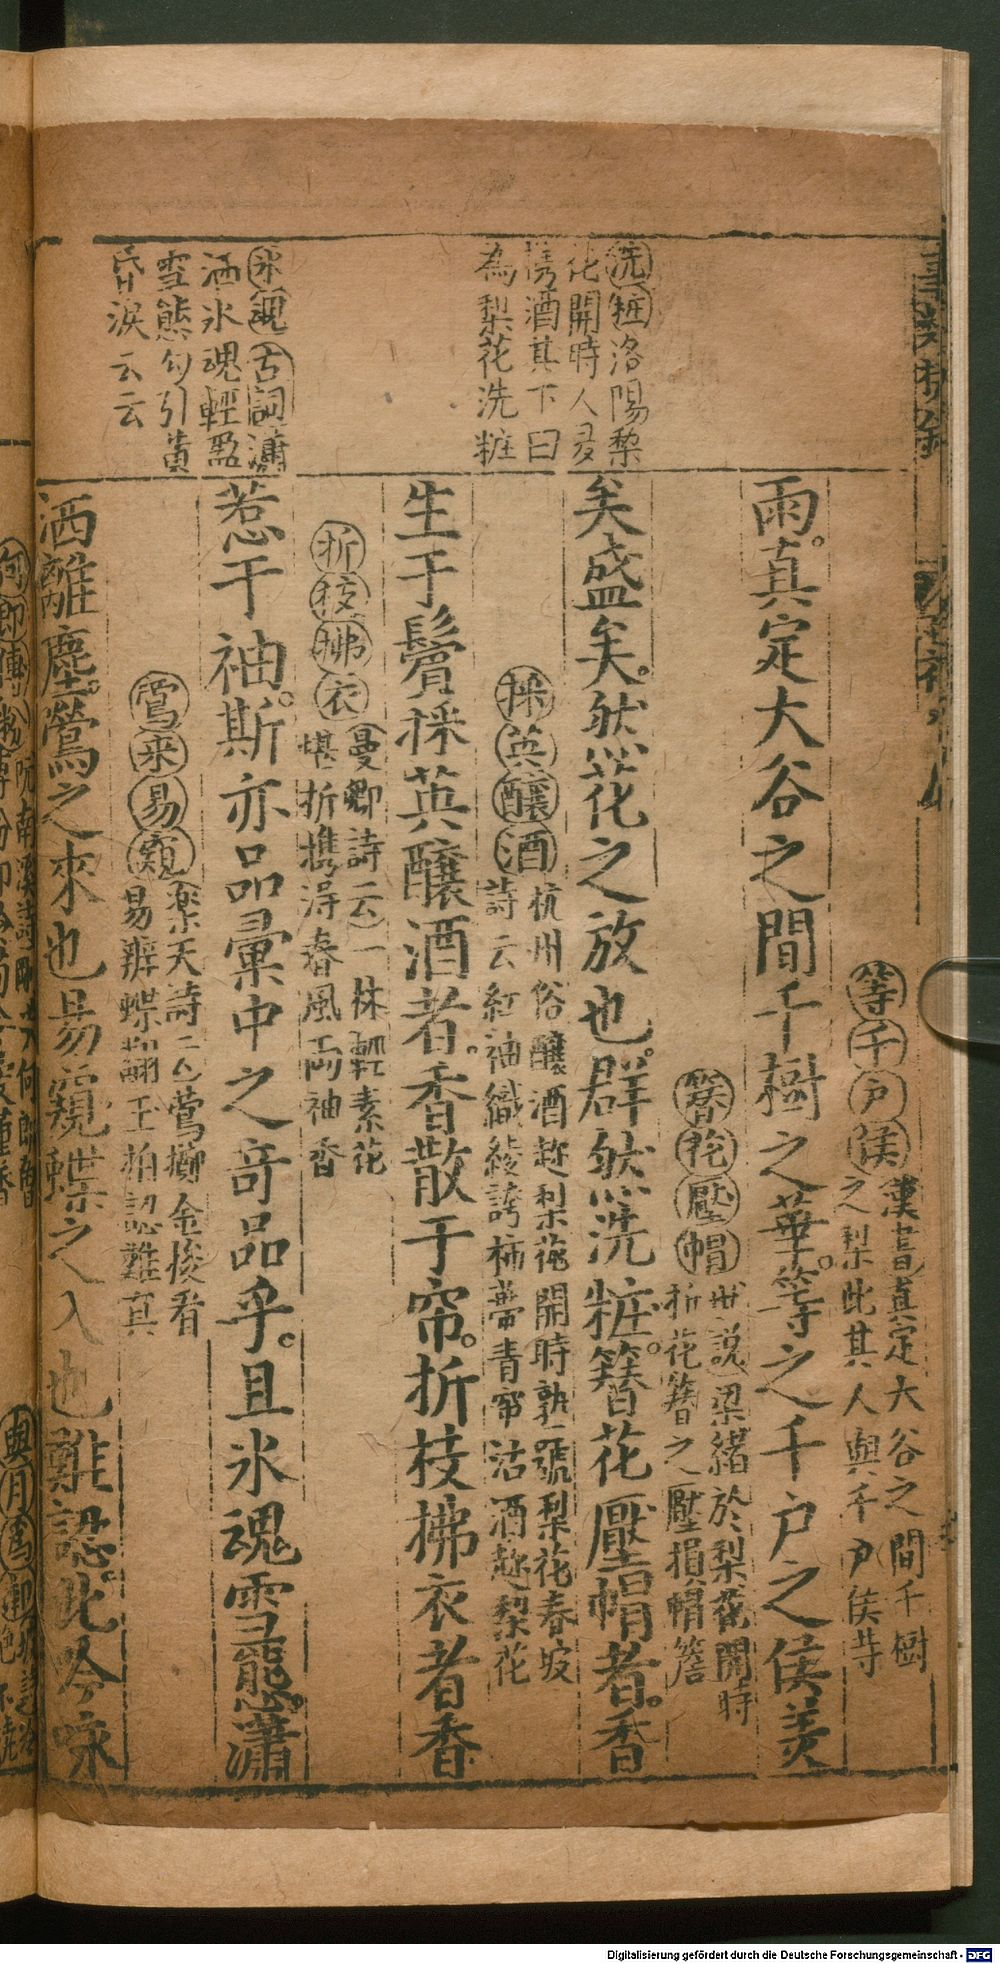 洗粧洛陽梨
花開時人多
携酒其下曰
為梨花洗粧
氷魂古詞瀟
洒氷魂輕盈
雪態勾引黄
昏淚云云
等千戸侯漢書真定大谷之間千樹
之梨此其人與千戸侯等
雨。真定大谷之間千樹之華。等之千戸之侯美
簪花壓帽世說梁緒於梨花開時
折花簪之壓損帽簷
矣盛矣。然花之放也。群然洗粧。簪花壓帽者。香
採英釀酒杭州俗釀酒趂梨花開時熟号梨花春坡
詩云紅袖織綾誇柿蒂青帘沽酒趂梨花
生于鬢採英釀酒者。香散于帘。折枝拂衣者香
折枝拂衣曼卿詩云一株軽素花
堪折携得春風両袖香
惹干袖。斯亦品彙中之奇品乎。且氷魂雪態。瀟
鶯来易窺楽天詩云鶯擲金梭看
易辨蝶翻玉拍認難真
洒離塵。鶯之來也易窺蝶之入也難認。此吟咏
Digitalisierung gefördert durch die Deutsche Forschungsgemeinschaft - DFG